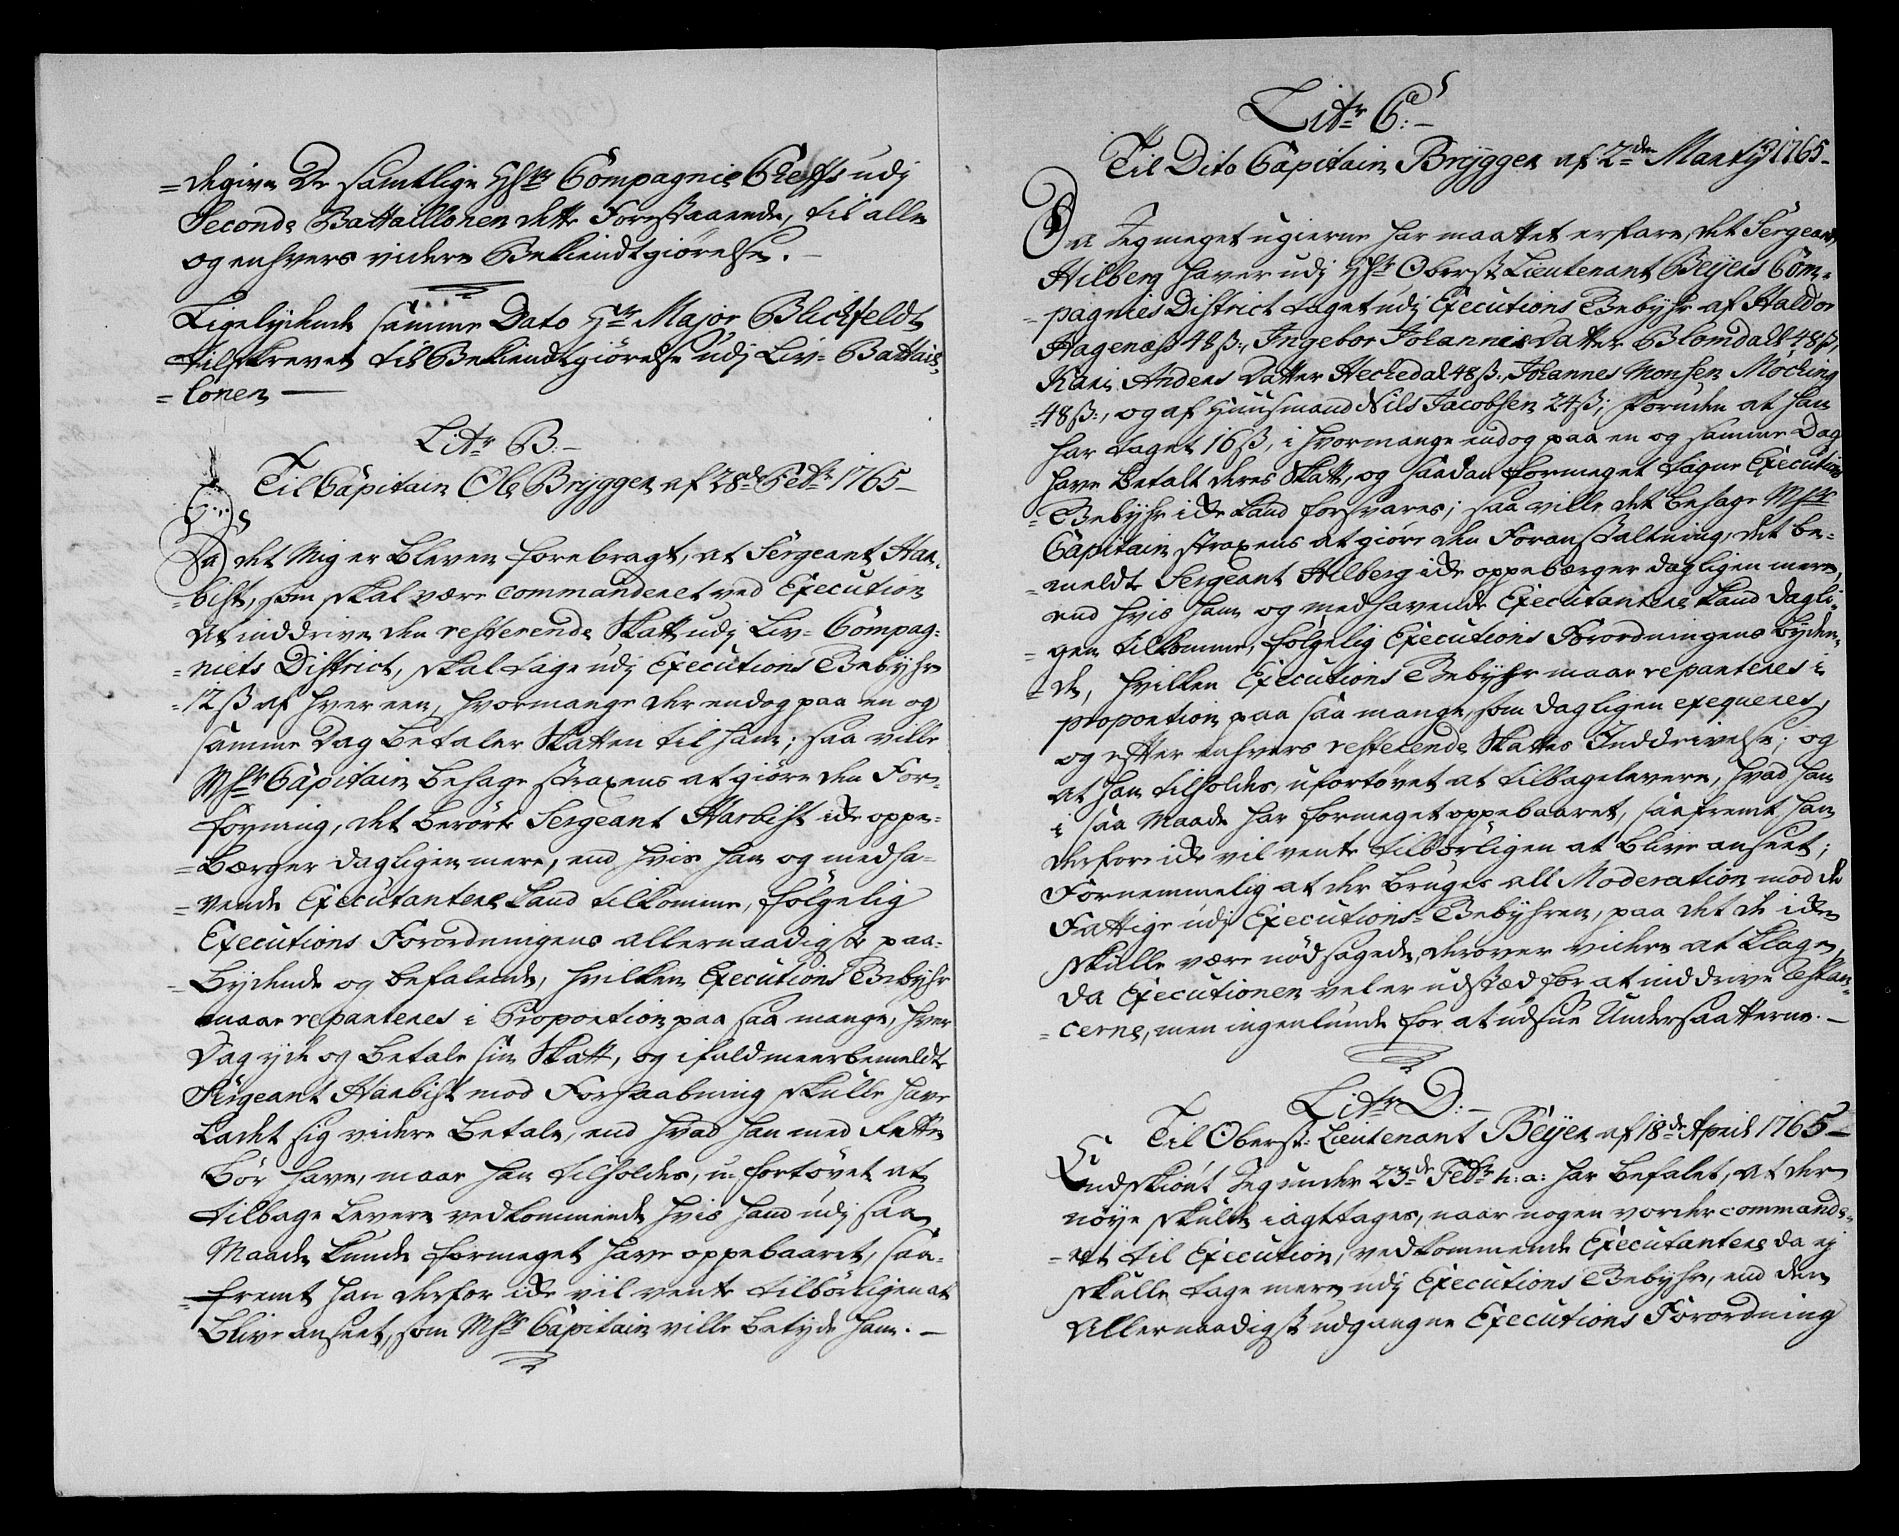 =delgive De samtlige HHrr Compagnie Cheffs udj
Seconde Battaillonen dette Forestaaende, til alle
og enhvers videre Bekiendtgiörelse. –
Ligelydende samme Dato Hr Major Blichfeldt
tilskrevet til Bekiendtgiörelse udj Liv= Battail=
=lonen –
Litr B: –
Til Capitain Ole Brygger af 28de Febr 1765 –
Da det Mig er bleven forebragt, at Sergeant Har=
=bist, som skal være commanderet ved Execution
at inddrive den resterende Skatt udj Liv= Compag=
=niets District, skal tage udj Executions Gebyhr
=12 ß af hver een, hvormange der endog paa en og
samme Dag betaler Skatten til ham; saa ville
MHr Capitain behage straxens at giöre den For=
föyning, det berörte Sergeant Harbist ickе oppe=
=bærger dagligen mere, end hvis han og medha=
=vende Executantere kand tilkomme, fölgelig
Executions Forordningens allernaadigste paa=
=bydende og befalende, hvilken Executions Gebyhr
maae reparteres i Proportion paa saa mange, hver
Dag yde og betale sin Skatt, og ifald meerbemeldte
Sergeant Harbist mod Forhaabning skulle have
ladet sig videre betale, end hvad han med Rette
bör have, maae han tilholdes, ufortövet at
tilbage levere vedkommende hvis hand udj saa
Maade kunde formeget have oppebaaret, saa=
=fremt han derfor icke vil vente tilbörligen at
blive anseet, som MHr Capitain ville betyde ham. –
Litr C: –
Til Dito Capitain Brygger af 2den Martij 1765 –
Da Jeg meget ugierne har maattet erfare, det Sergeant
Hilberg haver udj Hr Oberst Lieutenant Beijers Com=
=pagnies District taget udj Executions Gebyhr af Haldor
Hagenæs 48 ß:, Ingebor Johannes Datter Blomdall 48 ß,
Kari Anders Datter Heckedal 48 ß:, Johannes Monsen Möcking
=48 ß:, og af Huusmand Nils Jacobsen 24 ß; foruden at han
har taget 16 ß, i hvormange endog paa en og samme Dag
have betalt deres Skatt, og saadan formeget tagne Executions
=Gebyhr icke kand forsvares; saa ville det behage MHr
Capitain straxens at giöre den Foranstaltning, det be=
=meldte Sergeant Hilberg icke oppebærger dagligen mere,
end hvis ham og medhavende Executantere kand dagli=
=gen tilkomme, fölgelig Executions Forordningens byden=
=de, hvilken Executions Gebyhr maae reparteres i
proportion paa saa mange, som dagligen exequeres,
og efter enhvers resterende Skattes Inddrivelse; og
at han tilholdes, ufortövet at tilbagelevere, hvad han
i saa Maade har formeget oppebaaret, saafremt han
derfore icke vil vente tilbörligen at blive anseet;
Fornemmelig at der bruges all Moderation mod de
Fattige udj Executions= Gebyhren, paa det de icke
skulle være nödsagede, deröver videre at klage,
da Executionen vel er udstæd for at inddrive Restan=
=cerne, men ingenlunde for at udsue Undersaatterne. –
Litr D: –
Til Oberst: Lieutenant Beijer af 18de April 1765 –
Endskiönt Jeg under 23de Febr h: a: har befalet, at der
nöye skulde iagttages, naar nogen vorder commande=
=ret til Execution, vedkommende Executantere da ej
skulle tage mere udj Executions Gebyhr, end den
Allernaadigst udgangne Executions Forordning